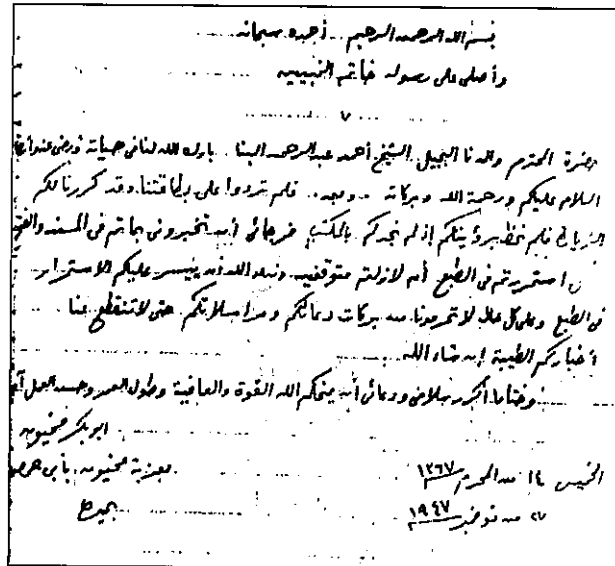 بسم الله الرحمن الرحيم .. أحمده سبحانه
وأصلى على رسوله خاتم النبيين
٧
حضرة المحترم والدنا الجليل الشيخ أحمد عبد الرحمن البنا . بارك الله لنا فى حياته ورضى عنه
السلام عليكم ورحمة الله وبركاته .. وبعد .. فلم تردوا على بطاقتنا وقد كررنا لكم
الزيارة فلم نحظ برؤيتكم إذ لم نجدكم بالمكتب فرجائى أن تخبرونى بما تم فى المسند والفتح
استمررتم فى الطبع أم لازلتم متوقفين ونسأل الله أن ييسر عليكم الاستمرار
فى الطبع وعلى كل حال لا تحرمونا من بركات دعائكم ومراسلاتكم حتى لا تنقطع عنا
أخباركم الطيبة إن شاء الله
وختاما أكرر سلامى ودعائى أن يمنحكم الله القوة والعافية وطول العمر وحسن العمل
ابو بكر مخيون
الخميس ١٤ من المحرم ١٣٦٧ بعزبة مخيون بأبى حمص
٢٧ من نوفمبر ١٩٤٧ بحيرة